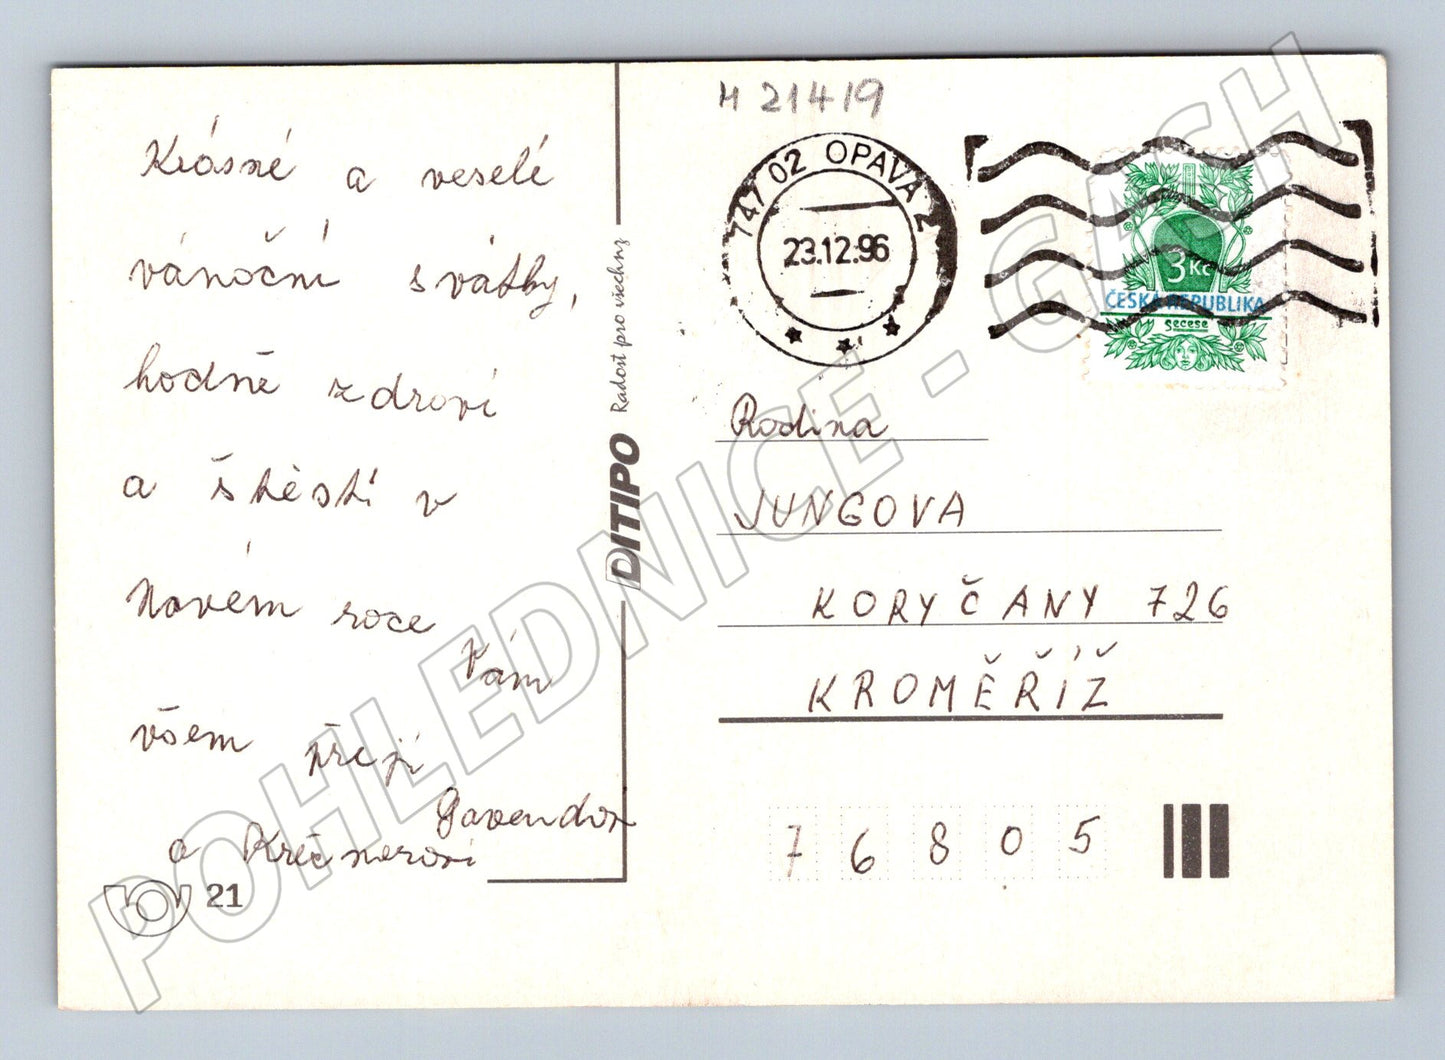 Krásné a veselé
vánoční svátky,
hodně zdraví
a štěstí v
Novém roce Vám
všem přejí
a Krečmerovi
21
Radost pro všechny
DITIPO
H 21419
747 02 OPAVA 2
23.12.96
3 Kč
ČESKÁ REPUBLIKA
Secese
Rodina
JUNGOVA
KORYČANY 726
KROMĚŘÍŽ
76805
POHLEDNICE - GASH